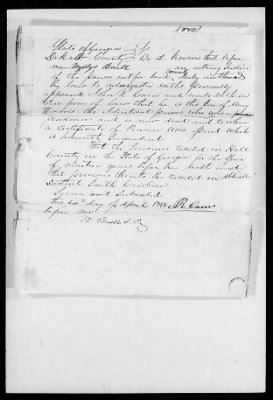 State of Georgia
DeKalb County Be it Known that before
me Wyllys Buell an acting Justice
of the peace in & for said County duly authorised
by law to administer oaths personally
appeared John R Cain and made oath in
due form of law that he is the Son of Mary
Cain the identical person who was a
Pensioner and is now dead and to whom
a certificate of Pension was issued which
is herewith
That the Pensioner resided in Hall
County in the State of Georgia for the space
of nineteen years before her death and
that previous thereto she resided in Abbeville
District South Carolina
Sworn and Subscribed
this day of April 1848 J R Cain
before me
W Buell J. P.